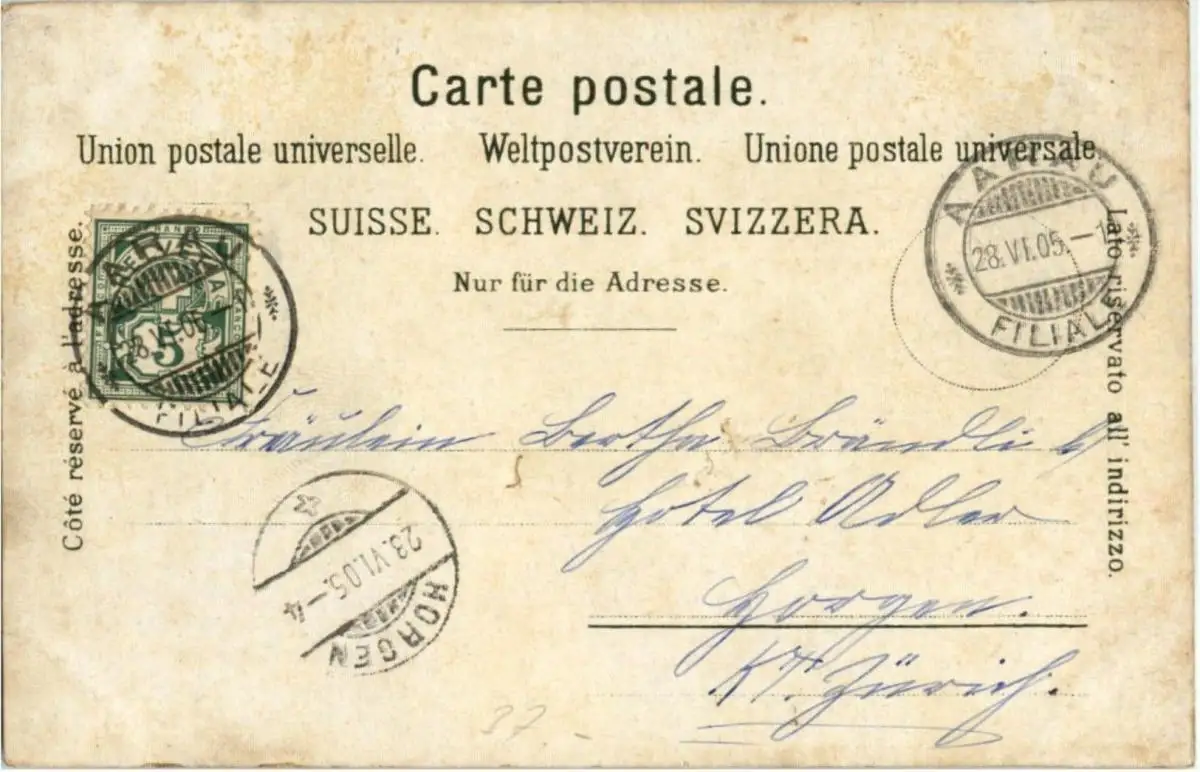 Carte postale.
Union postale universelle. Weltpostverein. Unione postale universale
SUISSE. SCHWEIZ. SVIZZERA.
Nur für die Adresse.
Côté réservé à l'adresse.
Lato riservato all' indirizzo.
AARAU
28.VI.05.–1
FILIALE
AARAU
28.VI.05
FILIALE
5
Fräulein Bertha Brändli
Hotel Adler
Horgen.
Kt. Zürich.
28.VI.05.–4
HORGEN
37